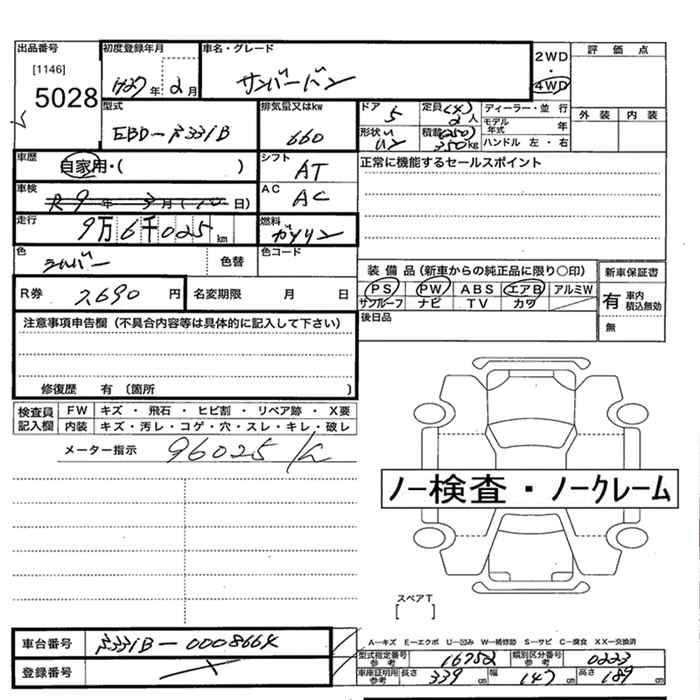 出品番号
[1146]
5028
初度登録年月
H27年 2月
車名・グレード
サンバーバン
2WD
・
4WD
評価点
外装 内装
型式
EBD-S331B
排気量又はkw
660
ドア
5
定員(4)
2人
形状
バン
積載(250)
350kg
ディーラー・並行
モデル年式 年
ハンドル 左・右
車歴
自家用・( )
シフト
AT
正常に機能するセールスポイント
車検
R9年3月(10日)
AC
AC
走行
9万6千025km
燃料
ガソリン
色
シルバー
色替
色コード
R券 2,690円
名変期限 月 日
装備品(新車からの純正品に限り○印)
PS PW ABS エアB アルミW
サンルーフ ナビ TV カワ
後日品
新車保証書
有 車内積込無効
無
注意事項申告欄(不具合内容等は具体的に記入して下さい)
修復歴 有 〔箇所 〕
検査員記入欄
FW キズ・飛石・ヒビ割・リペア跡・X要
内装 キズ・汚レ・コゲ・穴・スレ・キレ・破レ
メーター指示 96025K
ノー検査・ノークレーム
スペアT
[ ]
A-キズ E-エクボ U-凹み W-補修跡 S-サビ C-腐食 XX-交換済
車台番号 S331B-0008664
登録番号
型式指定番号参考 16752
類別区分番号参考 0233
車庫証明用参考 長さ 339cm 幅 147cm 高さ 189cm